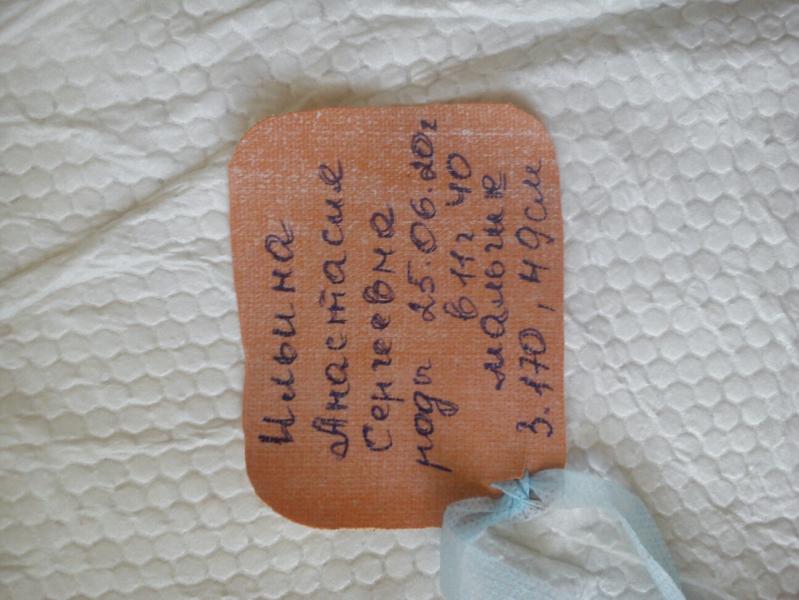 Ильина
Анастасия
Сергеевна
роды 25.06.20г
в 11г 40
мальчик
3.170, 49см